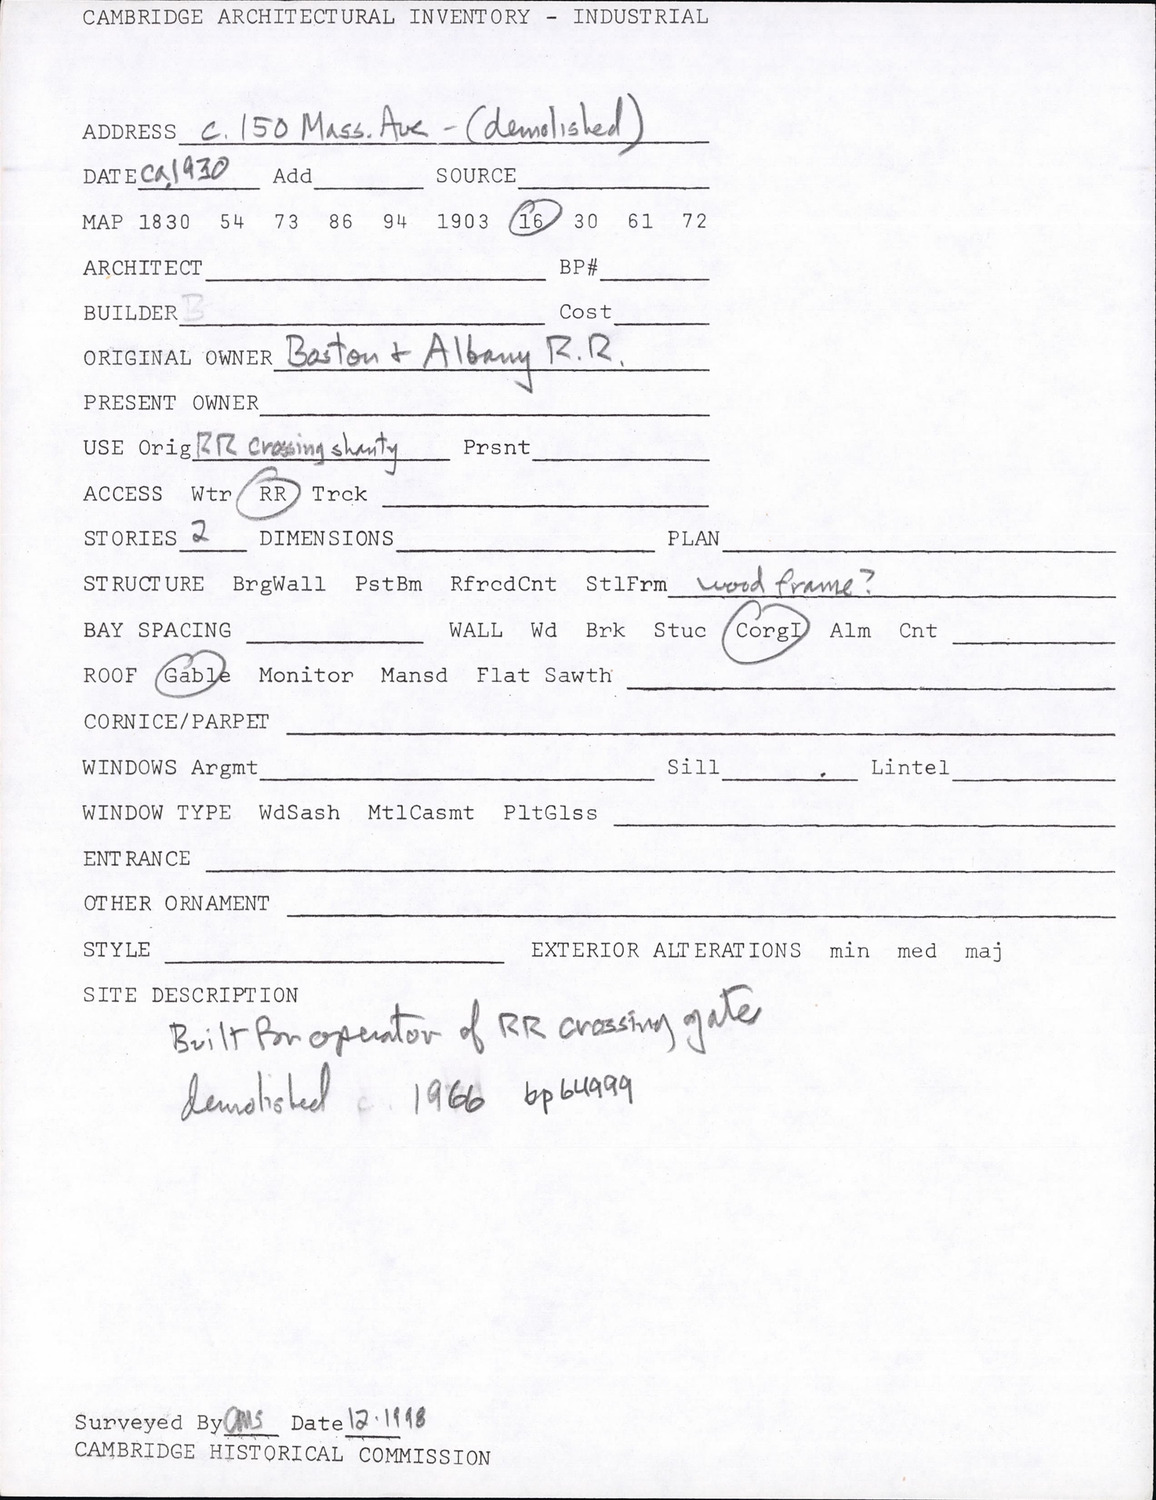 CAMBRIDGE ARCHITECTURAL INVENTORY - INDUSTRIAL
ADDRESS c. 150 Mass. Ave - (demolished)
DATE ca 1930 Add SOURCE
MAP 1830 54 73 86 94 1903 16 30 61 72
ARCHITECT BP#
BUILDER Cost
ORIGINAL OWNER Boston + Albany R.R.
PRESENT OWNER
USE Orig RR crossing shanty Prsnt
ACCESS Wtr RR Trck
STORIES 2 DIMENSIONS PLAN
STRUCTURE BrgWall PstBm RfrcdCnt StlFrm wood frame?
BAY SPACING WALL Wd Brk Stuc CorgI Alm Cnt
ROOF Gable Monitor Mansd Flat Sawth
CORNICE/PARPET
WINDOWS Argmt Sill Lintel
WINDOW TYPE WdSash MtlCasmt PltGlss
ENTRANCE
OTHER ORNAMENT
STYLE EXTERIOR ALTERATIONS min med maj
SITE DESCRIPTION
Built for operator of RR crossing gates
demolished 1966 bp64999
Surveyed By Date 12.1998
CAMBRIDGE HISTORICAL COMMISSION